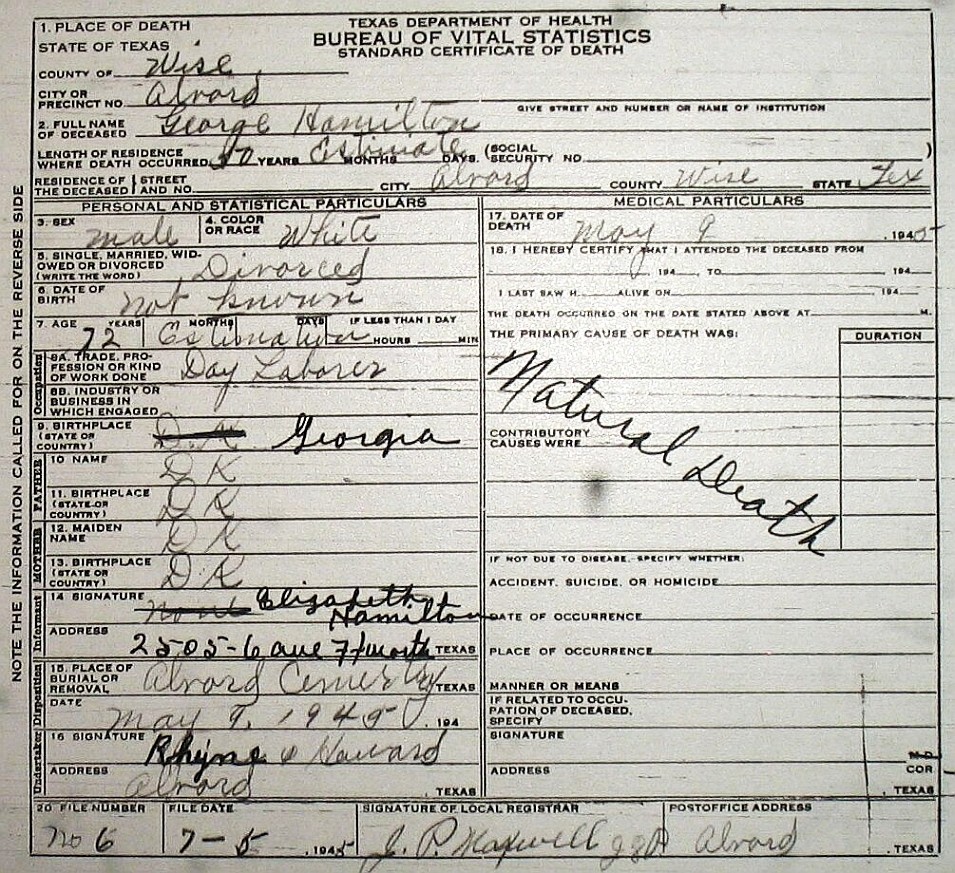 TEXAS DEPARTMENT OF HEALTH
BUREAU OF VITAL STATISTICS
STANDARD CERTIFICATE OF DEATH
1. PLACE OF DEATH
STATE OF TEXAS
COUNTY OF Wise
CITY OR
PRECINCT NO. Alvord
GIVE STREET AND NUMBER OR NAME OF INSTITUTION
2. FULL NAME
OF DECEASED George Hamilton
LENGTH OF RESIDENCE
WHERE DEATH OCCURRED YEARS Estimate MONTHS DAYS. (SOCIAL SECURITY NO. )
RESIDENCE OF THE DECEASED { STREET AND NO. CITY Alvord COUNTY Wise STATE Tex
NOTE THE INFORMATION CALLED FOR ON THE REVERSE SIDE
PERSONAL AND STATISTICAL PARTICULARS
3. SEX male 4. COLOR OR RACE White
5. SINGLE, MARRIED, WID-
OWED OR DIVORCED
(WRITE THE WORD) Divorced
6. DATE OF
BIRTH not known
7. AGE YEARS MONTHS DAYS IF LESS THAN 1 DAY
72 Estimation HOURS MIN
Occupation
8A. TRADE, PRO-
FESSION OR KIND
OF WORK DONE Day Laborer
8B. INDUSTRY OR
BUSINESS IN
WHICH ENGAGED
9. BIRTHPLACE
(STATE OR
COUNTRY) D.K Georgia
FATHER
10 NAME D K
11. BIRTHPLACE
(STATE OR
COUNTRY) D K
MOTHER
12. MAIDEN
NAME D K
13. BIRTHPLACE
(STATE OR
COUNTRY) D K
Informant
14 SIGNATURE Elizabeth
Hamilton
ADDRESS
2505-6 ave Ftworth TEXAS
Undertaker Disposition
15. PLACE OF
BURIAL OR
REMOVAL Alvord Cemetery TEXAS
DATE
May 9, 1945 , 194
16 SIGNATURE Rhyne & Howard
ADDRESS
Alvord , TEXAS
MEDICAL PARTICULARS
17. DATE OF
DEATH May 9 , 1945
18. I HEREBY CERTIFY THAT I ATTENDED THE DECEASED FROM
, 194 , TO , 194
I LAST SAW H ALIVE ON , 194
THE DEATH OCCURRED ON THE DATE STATED ABOVE AT M.
THE PRIMARY CAUSE OF DEATH WAS: DURATION
Natural Death
CONTRIBUTORY
CAUSES WERE
IF NOT DUE TO DISEASE, SPECIFY WHETHER:
ACCIDENT, SUICIDE, OR HOMICIDE
DATE OF OCCURRENCE
PLACE OF OCCURRENCE
MANNER OR MEANS
IF RELATED TO OCCU-
PATION OF DECEASED,
SPECIFY
SIGNATURE
M.D.
ADDRESS COR
, TEXAS
20. FILE NUMBER FILE DATE SIGNATURE OF LOCAL REGISTRAR POSTOFFICE ADDRESS
No 6 7-5 , 1945 J. P. Maxwell Alvord , TEXAS